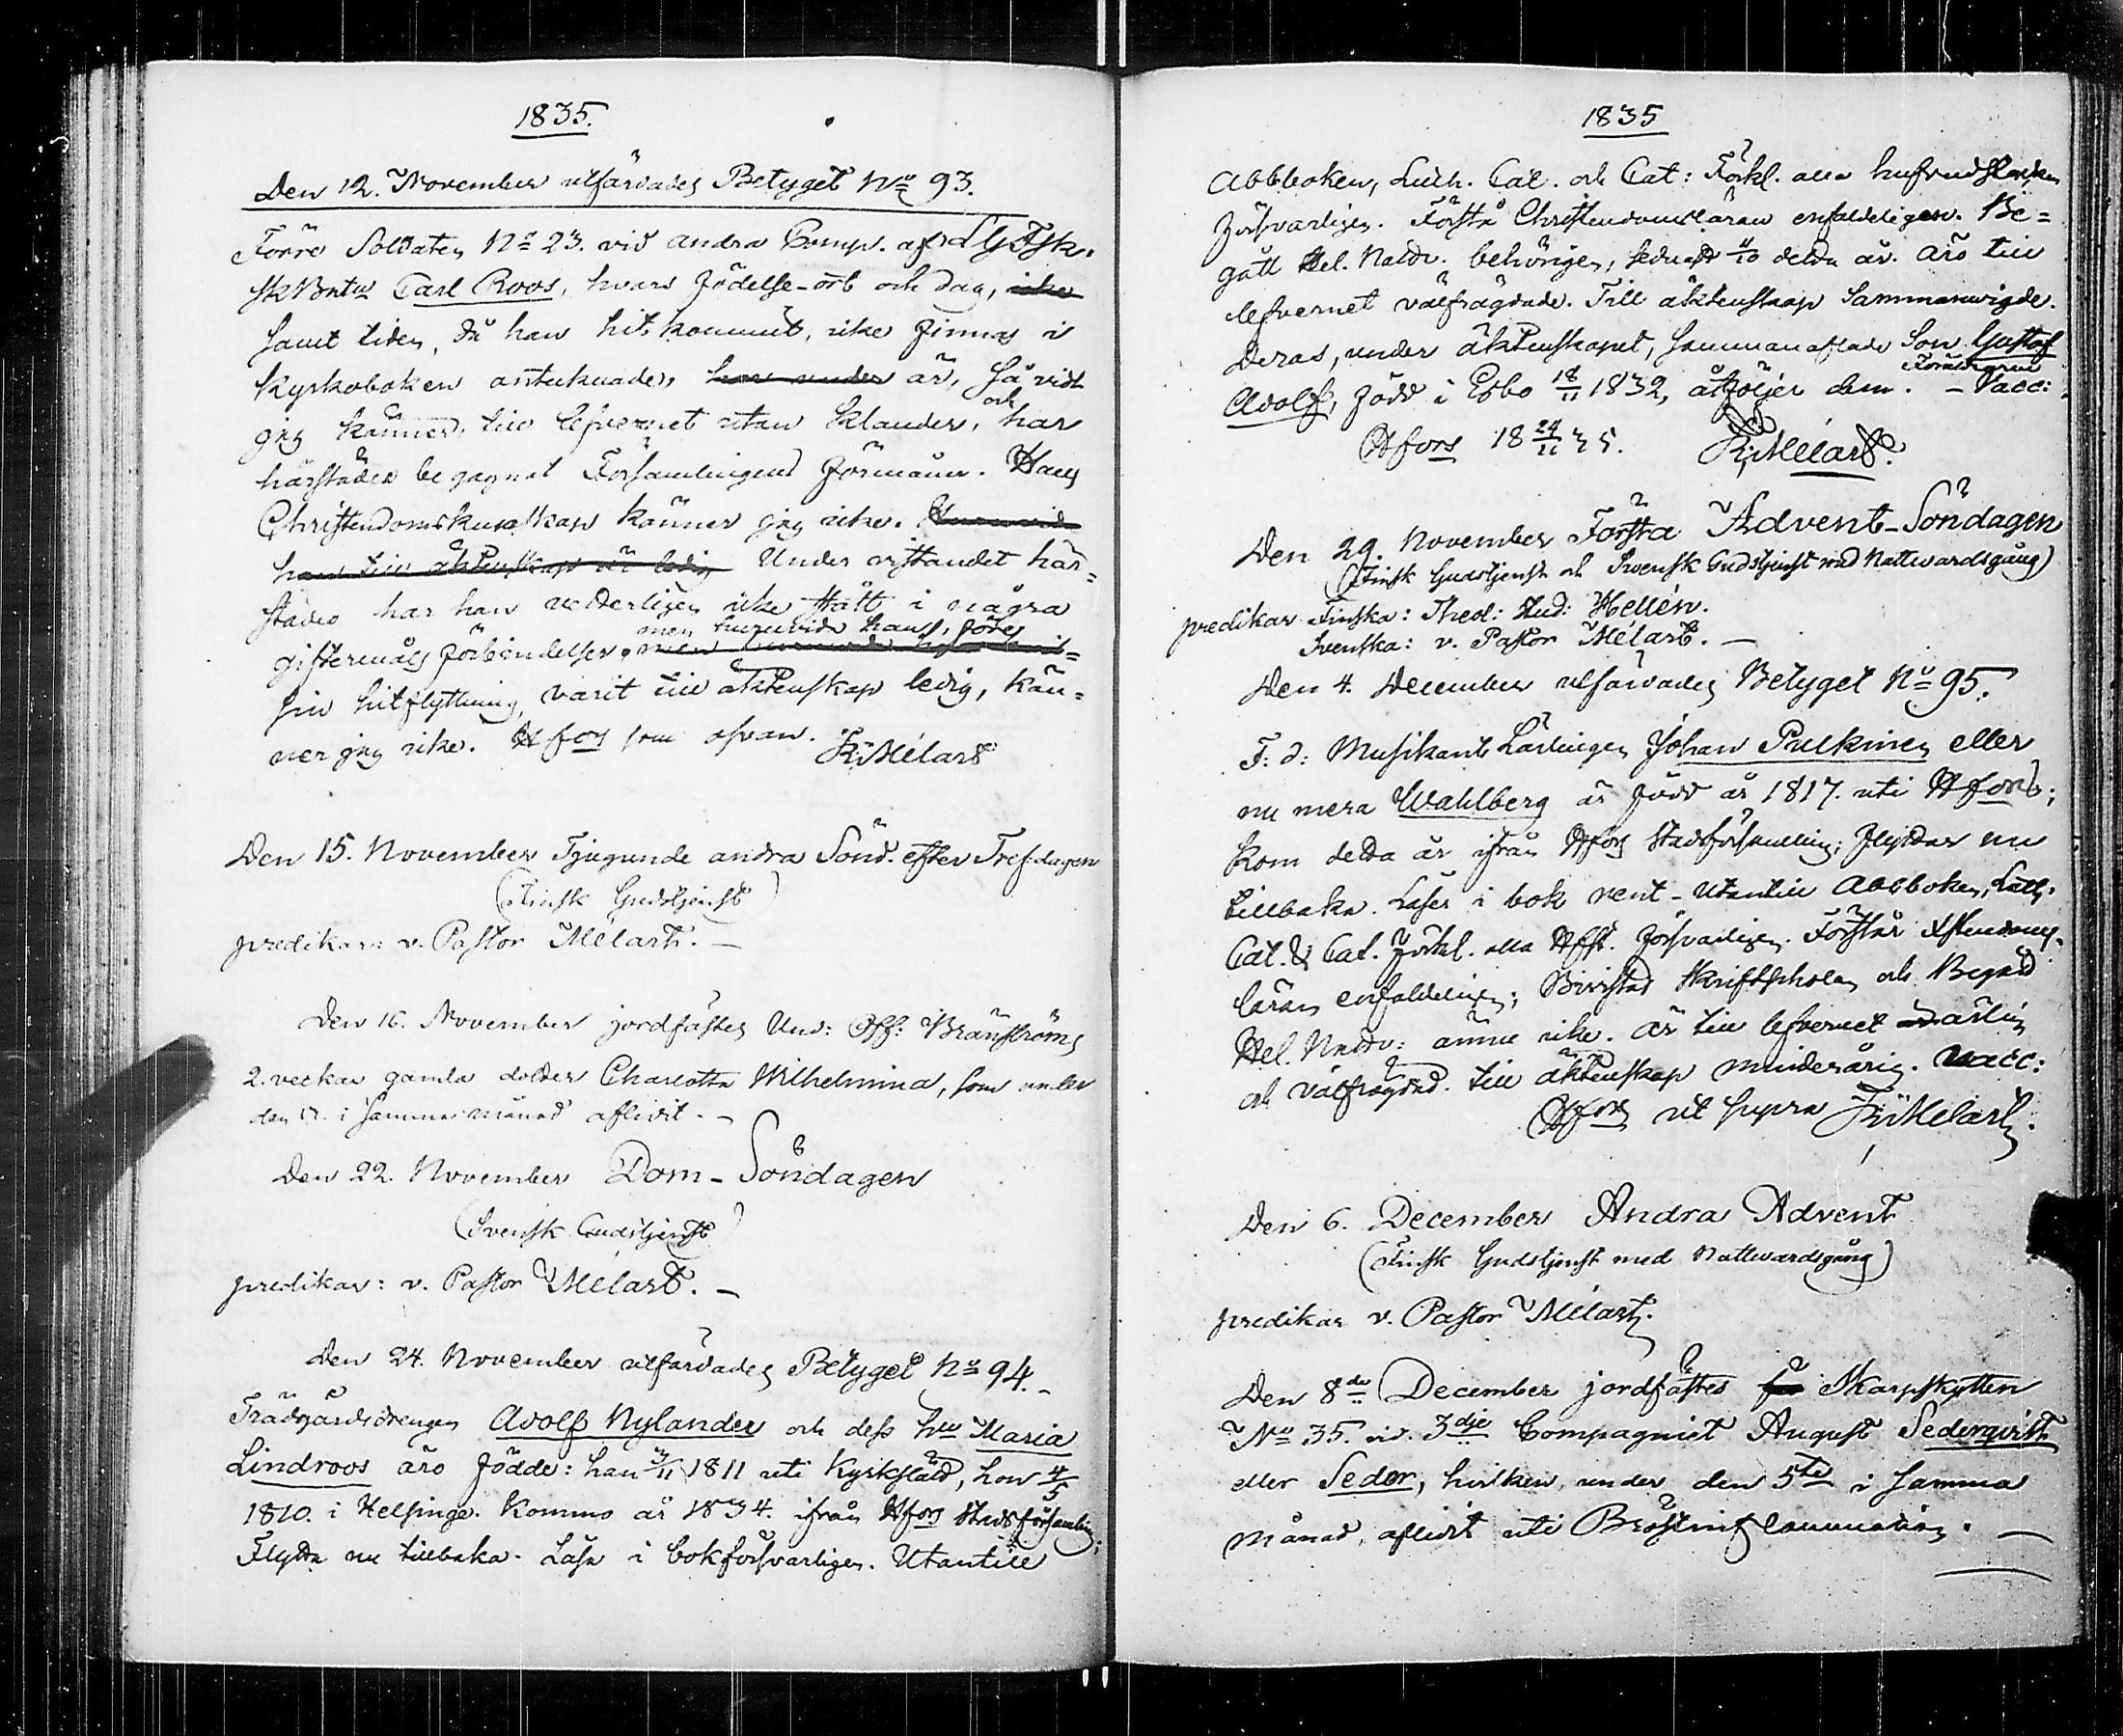 1835.
Den 12. November utfärdades Betyget No 93.
Förre Soldaten No 23. vid andra Comp. af LGFsk.
SkBatn Carl Roos, hvars födelse-ort och dag, icke
samt tiden, då han hit kommit, icke finnas i
kyrkoboken antecknade, är, så vidt
jag känner, till lefvernet utan klander, och har
härstädes begagnat Församlingens förmåner. Hans
Christendomskunskap känner jag icke.
han till äktenskap är ledig Under vistandet här-
städes har han vetterligen icke stått i några
giftermåls förbindelser, men huruvida han, före
sin hitflyttning, varit till äktenskap ledig, kän-
ner jag icke. Hfors som ofvan. Mélart
Den 15. November Tjugunde andra Sönd. efter Tref.dagen
(Finsk Gudstjenst)
predikar: v. Pastor Mélart. —
Den 16. November jordfästes Und: Off: Bränströms
2. veckar gamla dotter Charlotta Wilhelmina, som under
den i samma månad aflidit. —
Den 22. November Dom-Söndagen
(Svensk Gudstjenst)
predikar: v. Pastor Mélart. —
Den 24. November utfärdades Betyget No 94. -
Trädgårdsdrengen Adolf Nylander och dess hu Maria
Lindroos äro födde: han 3/11 1811 uti Kyrkslätt, hon 4/5
1810. i Helsinge. Kommo år 1834. ifrån Hfors Stadsförsamling;
Flytta nu tillbaka. Läsa i bok försvarligen. Utantill
1835
Abbboken, Luth. Cat. och Cat: Förkl. alla hufvudstycken
försvarligen. Förstå Christendomsläran enfaldeligen. Be-
gått Hel. Nattv. behörigen, sednast /10 detta år. Äro till
lefvernet välfrägdade. Till äktenskap Sammanvigde.
Deras, under äktenskapet, sammanaflade Son Gustaf
Adolf, född i Esbo 18/11 1832, åtföljer dem. Föräldrarne — Vacc:
Hfors 18 24/11 35. Mélart.
Den 29. November Första Advent-Söndagen
(Finsk Gudstjenst och Svensk Gudstjenst med Nattvardsgång)
predikar Finska: Theol: Stud: Hellén.
Svenska: v. Pastor Mélart. —
Den 4. December utfärdades Betyget No 95.
F: d: Musikant Lärlingen Johan Pulkinen eller
nu mera Wahlberg är född år 1817. uti Hfors;
kom detta år ifrån Hfors Stadsförsamling; flyttar nu
tillbaka. Läser i bok rent - Utantill Abbboken, Luth.
Cat. & Cat. förkl. alla Hfst. försvarligen. Förstår Xstendoms-
läran enfaldeligen; Bivistat Skriftskolan och Begått
Hel. Nattv: ännu icke. Är till lefvernet ärlig
och välfrägdad. till äktenskap minderårig. Vacc:
Hfors ut supra Mélart.
Den 6. December Andra Advent
(Finsk Gudstjenst med Nattvardsgång)
predikar v. Pastor Mélart.
Den 8de December jordfästes Skarpskytten
No 35. vid 3dje Compagniet August Sederqvist
eller Seder, hvilken under den 5te i samma
månad, aflidit uti Bröstinflammation. —